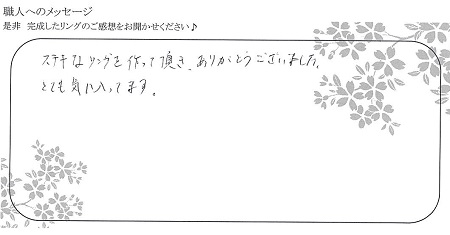 職人へのメッセージ
是非 完成したリングのご感想をお聞かせください♪
ステキなリングを作って頂き、ありがとうございました。
とても気に入ってます。